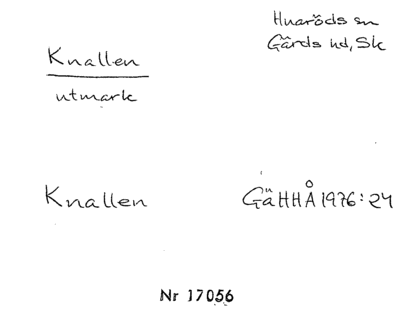 Huaröds sn
Gärds hd, Sk
Knallen
utmark
Knallen GäHHÅ 1976:24
Nr 17056